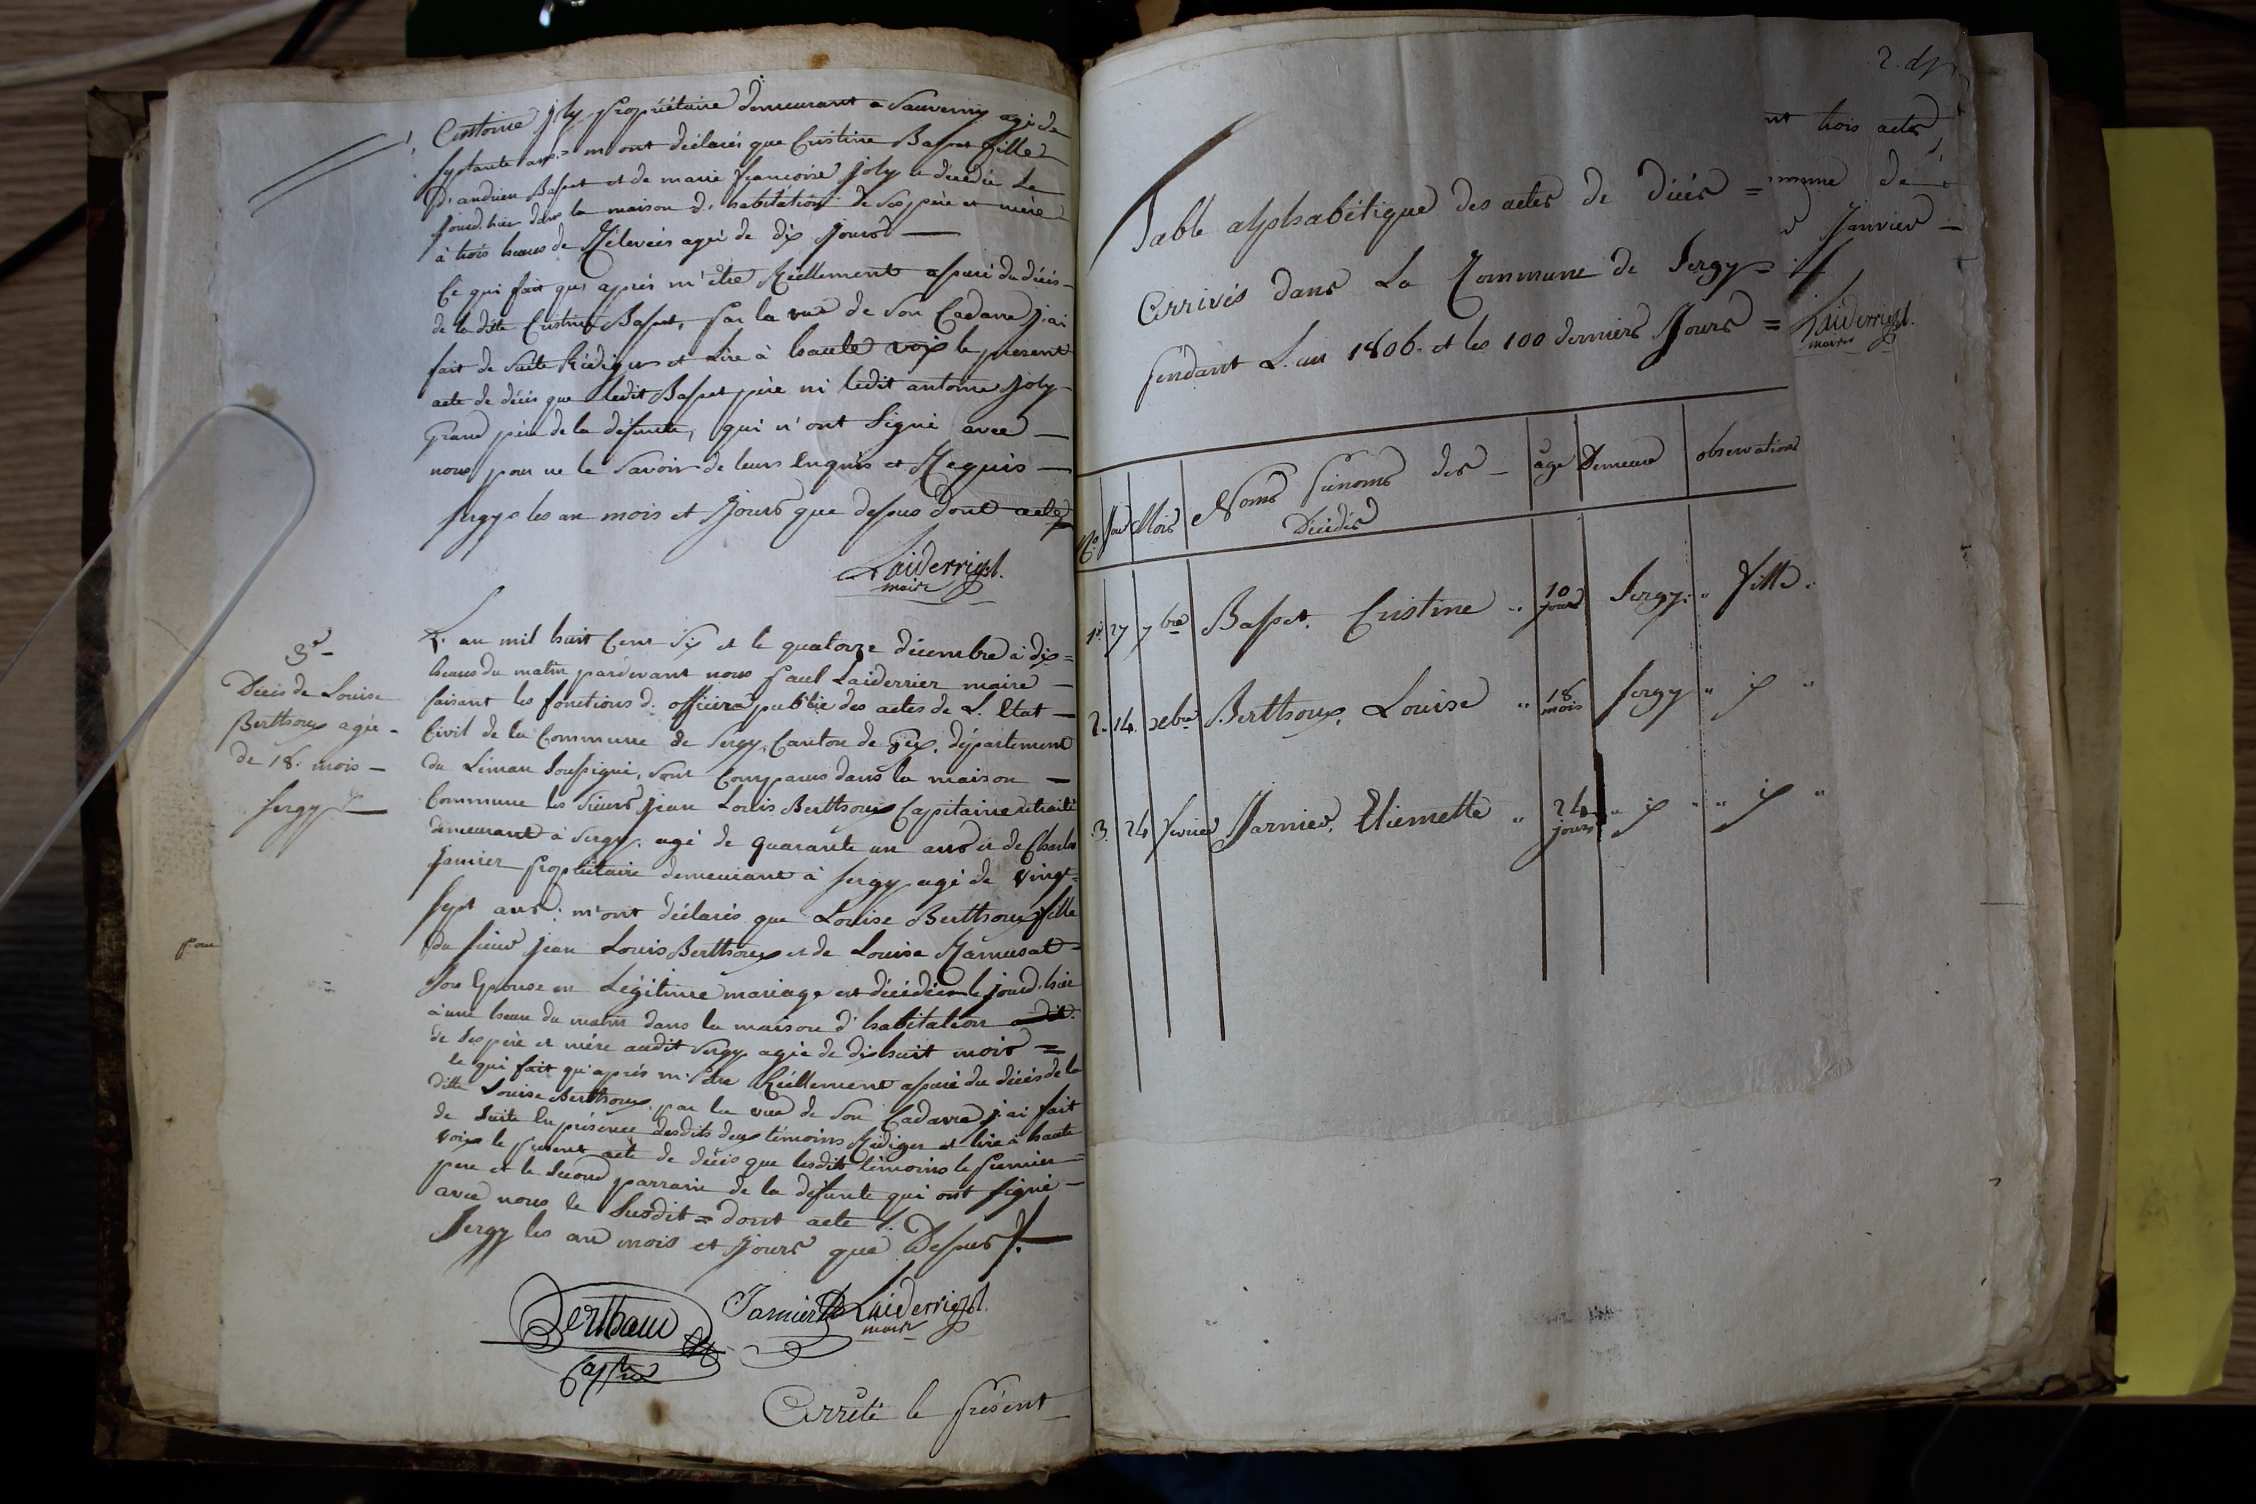 Antoine joly propriétaire demeurant a Sauverny agé de
septante ans = m'ont déclarés que Cristine Basset fille
D'andrien Basset et de marie françoise joly e decedée Le
jourd'hui dans la maison d'habitation de Ses père et mère
à trois heures de Rélevées agée de dix jours —
Ce qui fait qu'après m'être Réellement assuré du décès
de la dite Cristine Basset, par la vue de Son Cadavre j'ai
fait de Suite Rédiger et Lire à haute voix le present
acte de décès que ledit Basset père ni ledit antoine joly
grand père de la défunte, qui n'ont Signé avec —
nous pour ne le Savoir de leurs Enquis et Requis —
Sergy les an mois et jours que dessus dont acte
Laiderrier
maire
3e
Décès de Louise
Berthoux agée
de 18. mois —
Sergy
L'an mil huit Cent Six et le quatorze décembre à dix =
heures du matin pardevant nous paul Laiderrier maire —
faisant les fonctions d'officier public des actes de L'Etat —
Civil de la Commune de Sergy, Canton de Gex, département
du Léman Soussigné, Sont Comparus dans la maison —
Commune les Sieurs jean Louis Berthoux Capitaine retraité
demeurant à Sergy, agé de quarante un ans et de Charles
Janier propriétaire demeurant à Sergy agé de vingt =
sept ans; m'ont déclarés que Louise Berthoux fille
du Sieur jean Louis Berthoux et de Louise Ramusat
Son Epouse en Légitime mariage est décédée le jourd'hui
à une heure du matin dans la maison d'habitation
de Ses père et mère audit Sergy agée de dixhuit mois =
Ce qui fait qu'après m'être Réellement assuré du décès de la
ditte Louise Berthoux, par la vue de Son Cadavre j'ai fait
de Suite En présence desdits deux témoins Rédiger et lire à haute
voix le present acte de décès que lesdits témoins le premier =
pere et le Second parrain de la défunte qui ont Signé —
avec nous le Susdit = dont acte
Sergy les an mois et jours que Dessus
Berthoux
Janier
Laiderrier
maire
Arrêté le présent
2. d
nt trois actes
Table alphabétique des actes de décès =
Arrivés dans La Commune de Sergy =
pendant L'an 1806. et les 100 derniers Jours =
Janvier —
Laiderrier
maire
No. Jour Mois Noms Prénoms des Décédés age Demeure observations
1. 27 7bre Basset. Cristine " 10 jours Sergy " fille "
2. 14. Xbre Berthoux, Louise " 18 mois Sergy " "
3. 24 fevrier Jarnier, Etiennette " 24 jours " " "